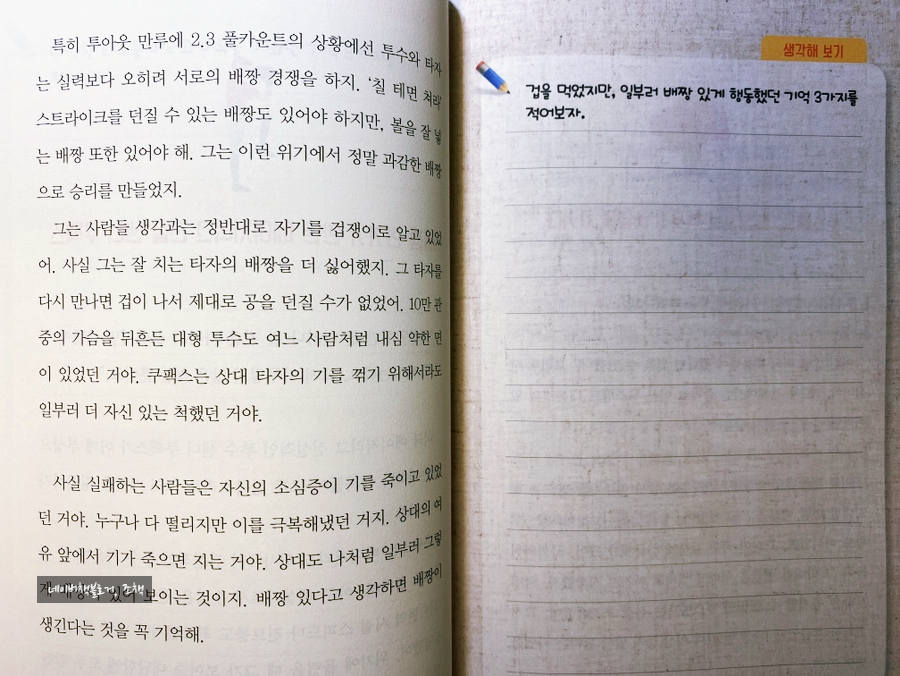 특히 투아웃 만루에 2.3 풀카운트의 상황에선 투수와 타자
는 실력보다 오히려 서로의 배짱 경쟁을 하지. ‘칠 테면 쳐라’
스트라이크를 던질 수 있는 배짱도 있어야 하지만, 볼을 잘 넣
는 배짱 또한 있어야 해. 그는 이런 위기에서 정말 과감한 배짱
으로 승리를 만들었지.
그는 사람들 생각과는 정반대로 자기를 겁쟁이로 알고 있었
어. 사실 그는 잘 치는 타자의 배짱을 더 싫어했지. 그 타자를
다시 만나면 겁이 나서 제대로 공을 던질 수가 없었어. 10만 관
중의 가슴을 뒤흔든 대형 투수도 여느 사람처럼 내심 약한 면
이 있었던 거야. 쿠팩스는 상대 타자의 기를 꺾기 위해서라도
일부러 더 자신 있는 척했던 거야.
사실 실패하는 사람들은 자신의 소심증이 기를 죽이고 있었
던 거야. 누구나 다 떨리지만 이를 극복해냈던 거지. 상대의 여
유 앞에서 기가 죽으면 지는 거야. 상대도 나처럼 일부러 그렇
게 있어 보이는 것이지. 배짱 있다고 생각하면 배짱이
생긴다는 것을 꼭 기억해.
네이버책블로거, 조책
생각해 보기
겁을 먹었지만, 일부러 배짱 있게 행동했던 기억 3가지를
적어보자.